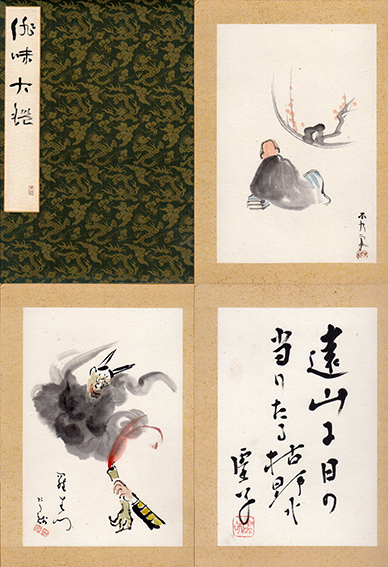 俳味大鑑
羅生門
遠山に日の
当りたる
枯野かな
虚子